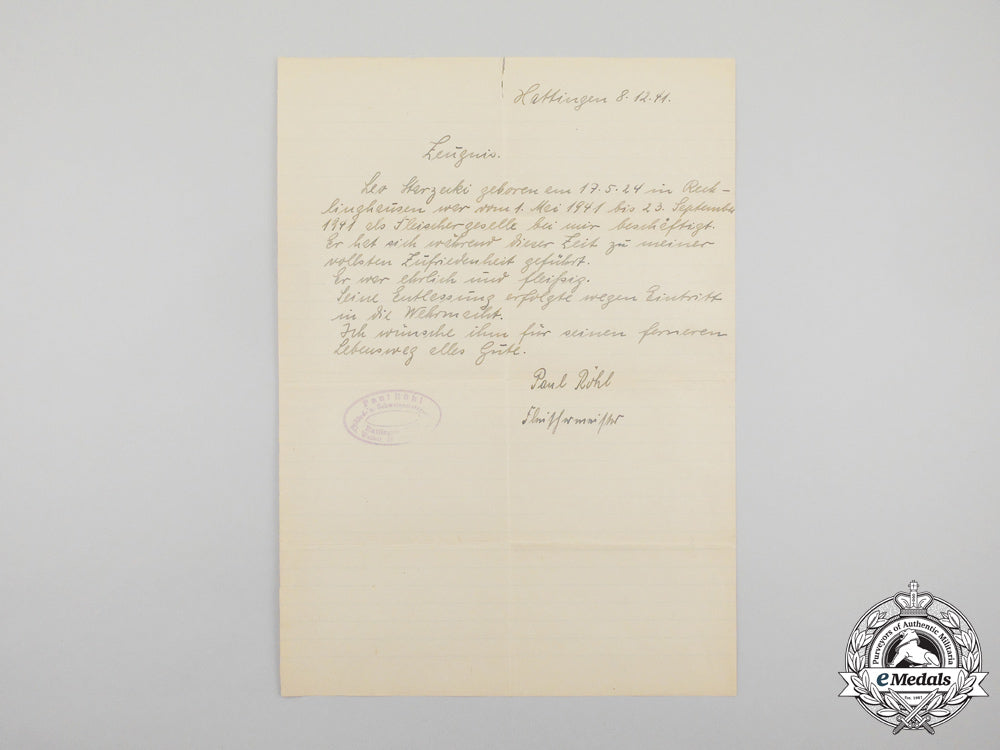 Hattingen 8.12.41.
Zeugnis.
Leo Sterzecki geboren am 17.5.24 in Reck-
linghausen war vom 1. Mai 1941 bis 23. September
1941 als Fleischergeselle bei mir beschäftigt.
Er hat sich während dieser Zeit zu meiner
vollsten Zufriedenheit geführt.
Er war ehrlich und fleißig.
Seine Entlassung erfolgte wegen Eintritt
in die Wehrmacht.
Ich wünsche ihm für seinen ferneren
Lebensweg alles Gute.
Paul Röhl
Fleischermeister
Paul Röhl
Purveyors of Authentic Militaria
eMedals
Est. 1987